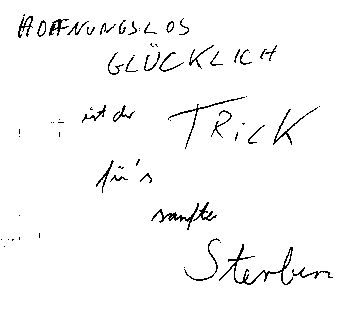 HOFFNUNGSLOS
GLÜCKLICH
ist der TRicK
für's
sanfte
Sterben